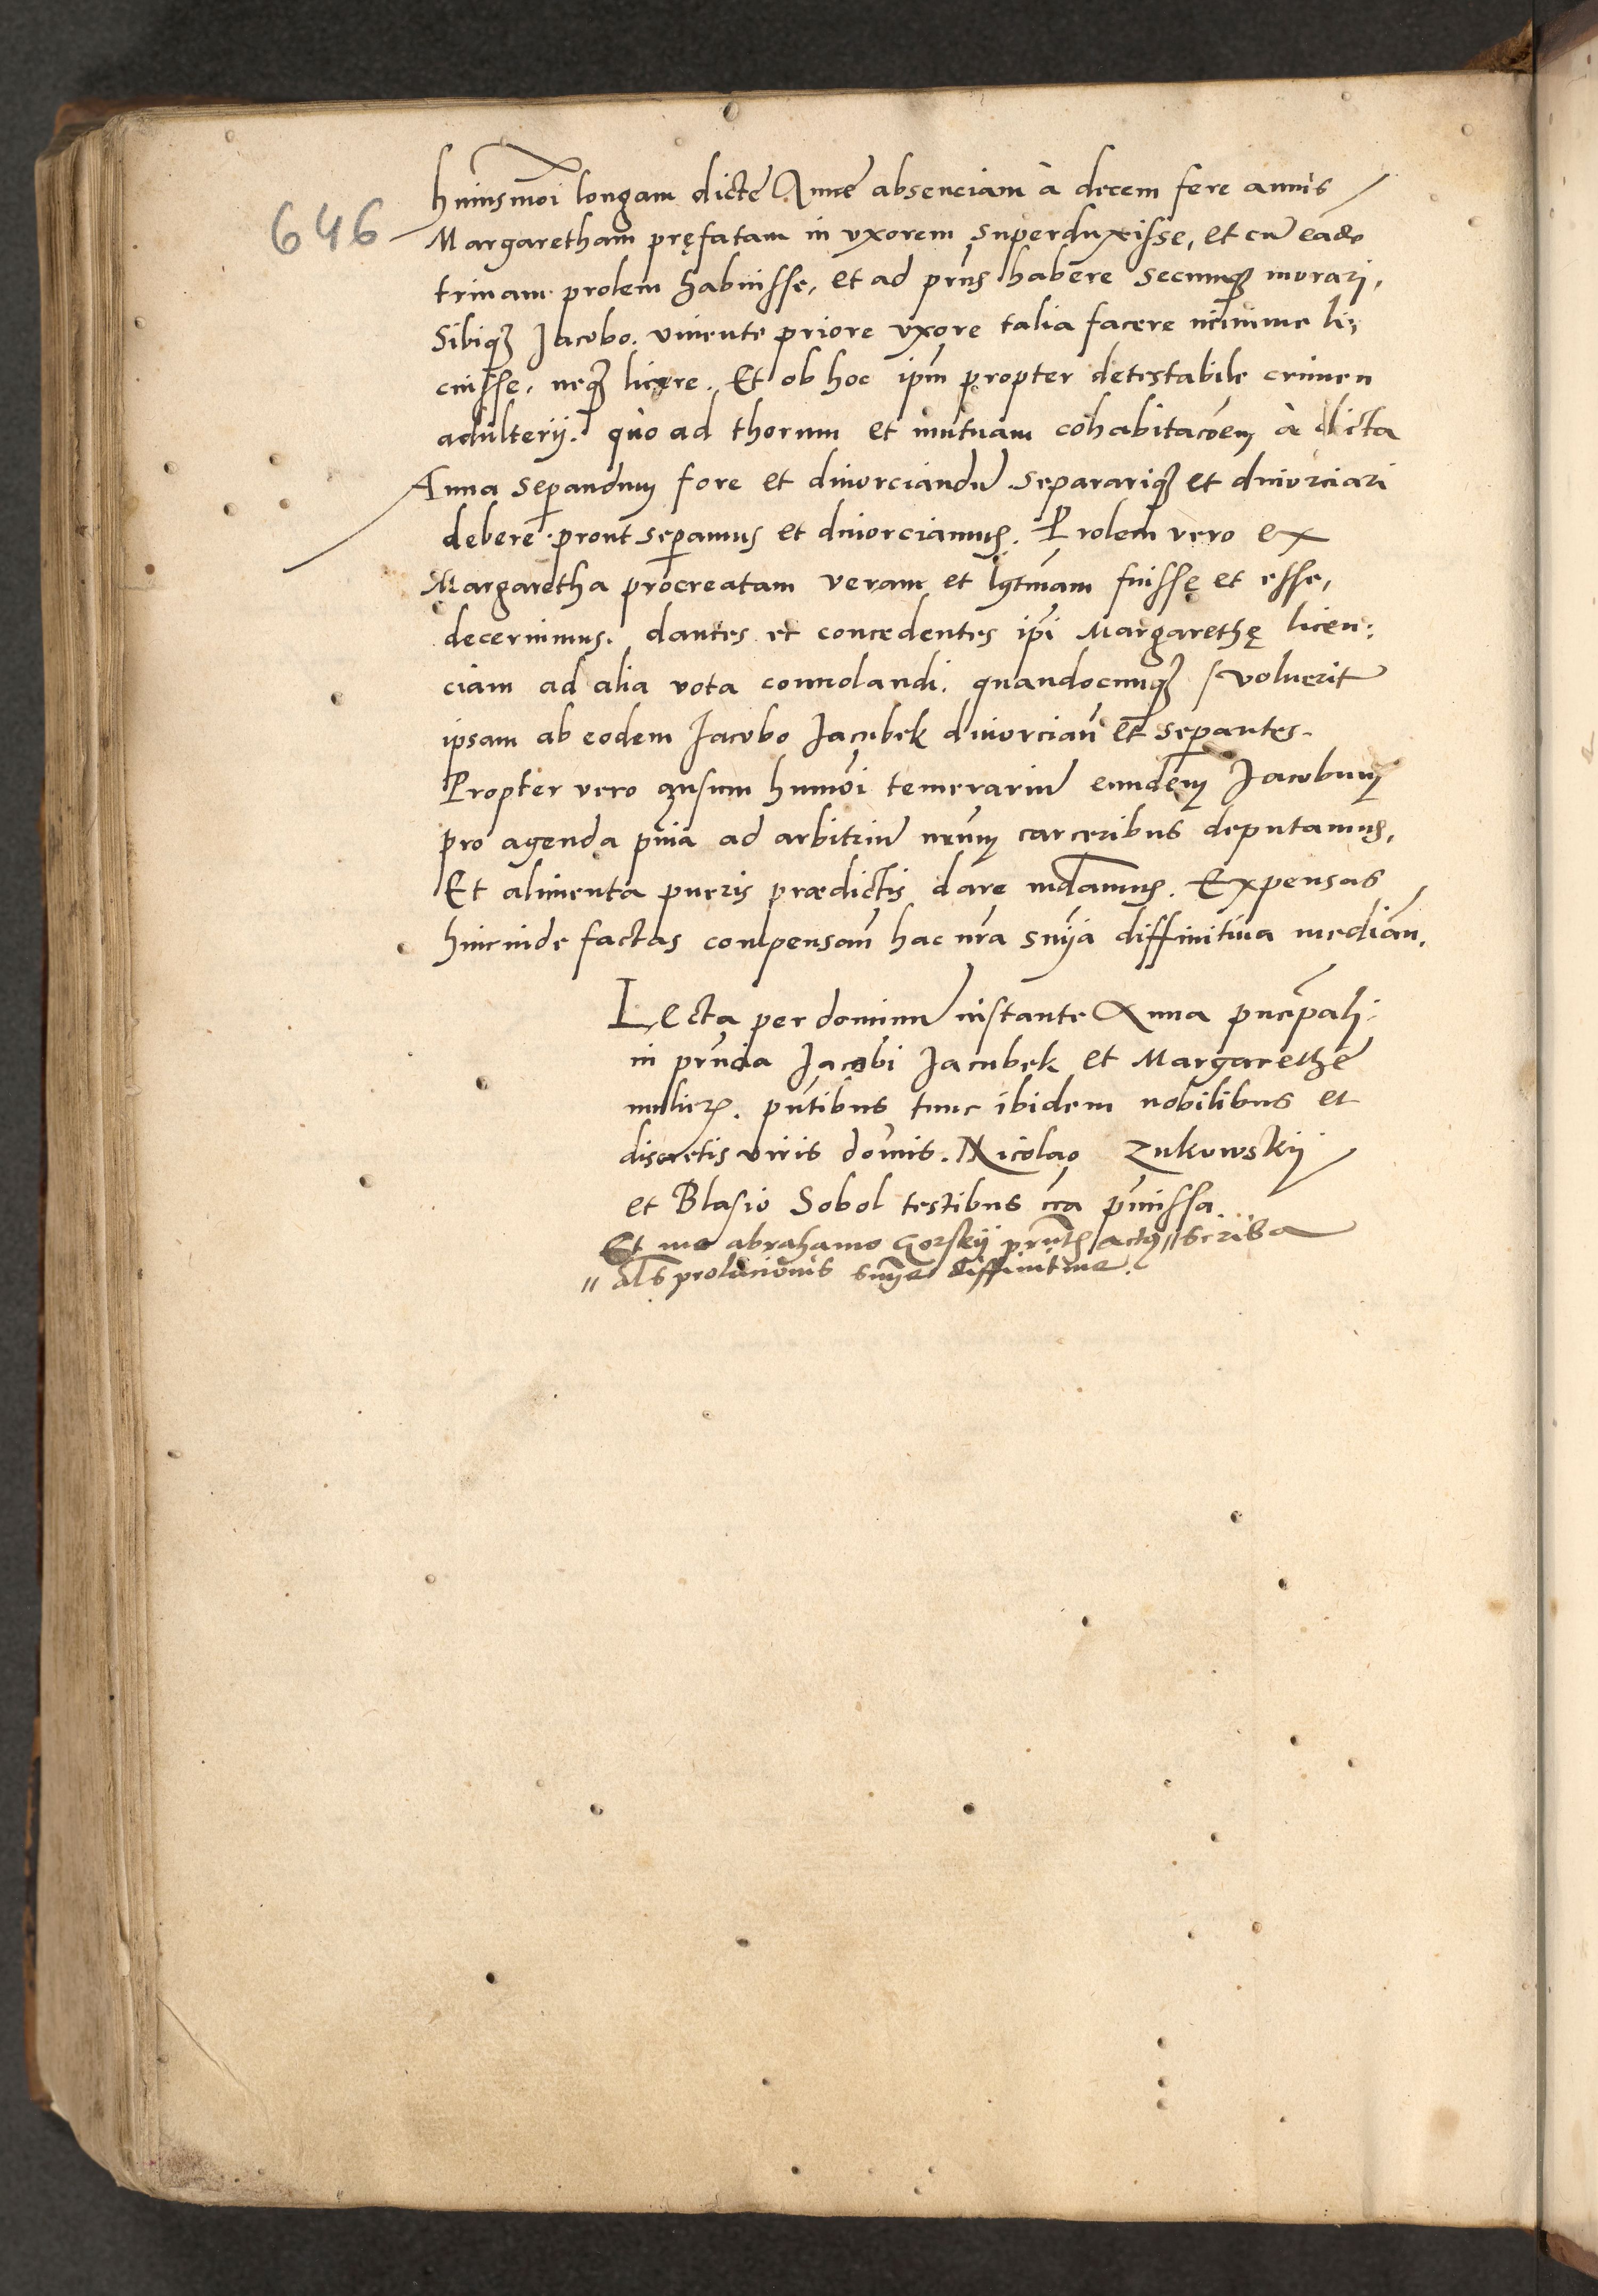 646
huiusmoi longam dicte Anne absenciam à decem fere annis
Margaretham pręfatam in vxorem superduxisse, et cũ eadẽ
trinam prolem habuisse, et ad pñs habere secumq3 morari,
Sibiq3 Jacobo. viuente priore vxore talia facere minime li=
cuisse, neq3 licere. Et ob hoc ipm̃ propter detestabile crimen
adulterij. quo ad thorum et mutuam cohabitacõem à dicta
Anna sep̱andum fore et diuorciandũ separariq3 et diuorciari
debere prout sep̱amus et diuorciamus. Prolem vero ex
Margaretha procreatam veram et lgt̃imam fuissę et esse,
decernimus. dantes et concedentes ip̃i Margarethę licen:
ciam ad alia vota conuolandi. quandocumq3 voluerit
ipsam ab eodem Jacobo Jacubek diuorciañ et sep̱antes.
Propter vero ausum humõi temerariũ eundem Jacobum
pro agenda pñia ad arbitriũ nr̃um carceribus deputamus,
Et alimenta pueris prædictis dare mdamus. Expensas
hincinde factas compensañ hac nr̃a sñija diffinitiua mediañ.
Lecta per dominũ instante Anna pñcipali
in pr̃ncia Jacobi Jacubek et Margarethe
mulier̃. pñtibus tunc ibidem nobilibus et
discretis viris dominis. Nicolao Zukowskij
et Blasio Sobol testibus cc̃a pr̃missa
Et me abrahamo Gorskij pr̃ntis actus scriba
" als prolacionis sñije diffinitiue.